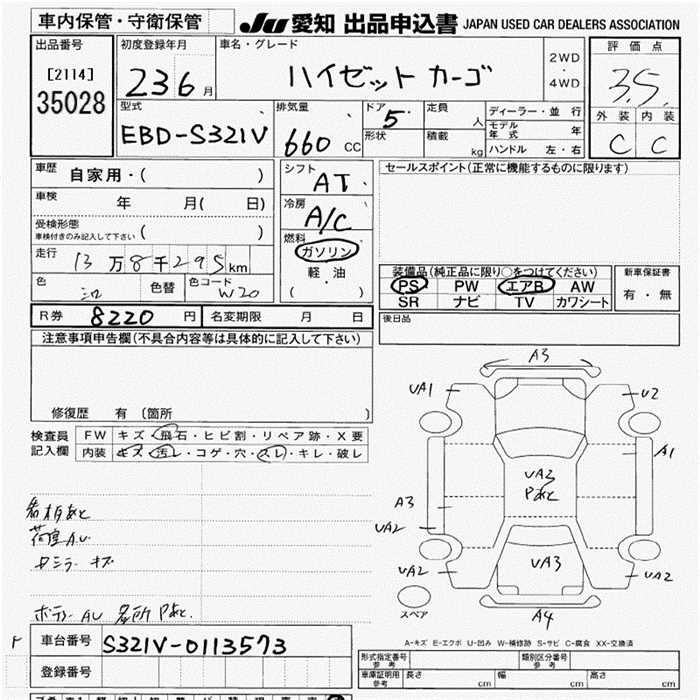 車内保管・守衛保管
JU 愛知 出品申込書 JAPAN USED CAR DEALERS ASSOCIATION
出品番号
[2114]
35028
初度登録年月
23 6 月
車名・グレード
ハイゼット カーゴ
2WD
・
4WD
評価点
3.5
外装 内装
C C
型式
EBD-S321V
排気量
660 CC
ドア 5
形状
定員 人
積載 kg
ディーラー・並行
モデル年式 年
ハンドル 左・右
車歴 自家用・( )
車検 年 月( 日)
受検形態
車検付きのみ記入して下さい ( )
走行 13 万 8 千 295 km
色 シロ 色替 色コード W20
シフト AT
冷房 A/C
燃料
ガソリン
軽油
( )
セールスポイント(正常に機能するものに限ります)
装備品(純正品に限り○をつけてください)
PS PW エアB AW
SR ナビ TV カワシート
新車保証書
有・無
R券 8220 円 名変期限 月 日
後日品
注意事項申告欄(不具合内容等は具体的に記入して下さい)
修復歴 有 (箇所 )
検査員記入欄
FW キズ・飛石・ヒビ割・リペア跡・X要
内装 キズ・汚レ・コゲ・穴・スレ・キレ・破レ
A3
UA1
U2
A1
UA3
Pあと
A3
UA2
UA2
UA3
UA2
スペア
A4
看板あと
荷室A.U
ミラー キズ
ボディー AU 各所 Pあと.
A-キズ E-エクボ U-凹み W-補修跡 S-サビ C-腐食 XX-交換済
車台番号 S321V-0113573
登録番号
形式指定番号 参考
類別区分番号 参考
車庫証明用 参考 長さ cm 幅 cm 高さ cm